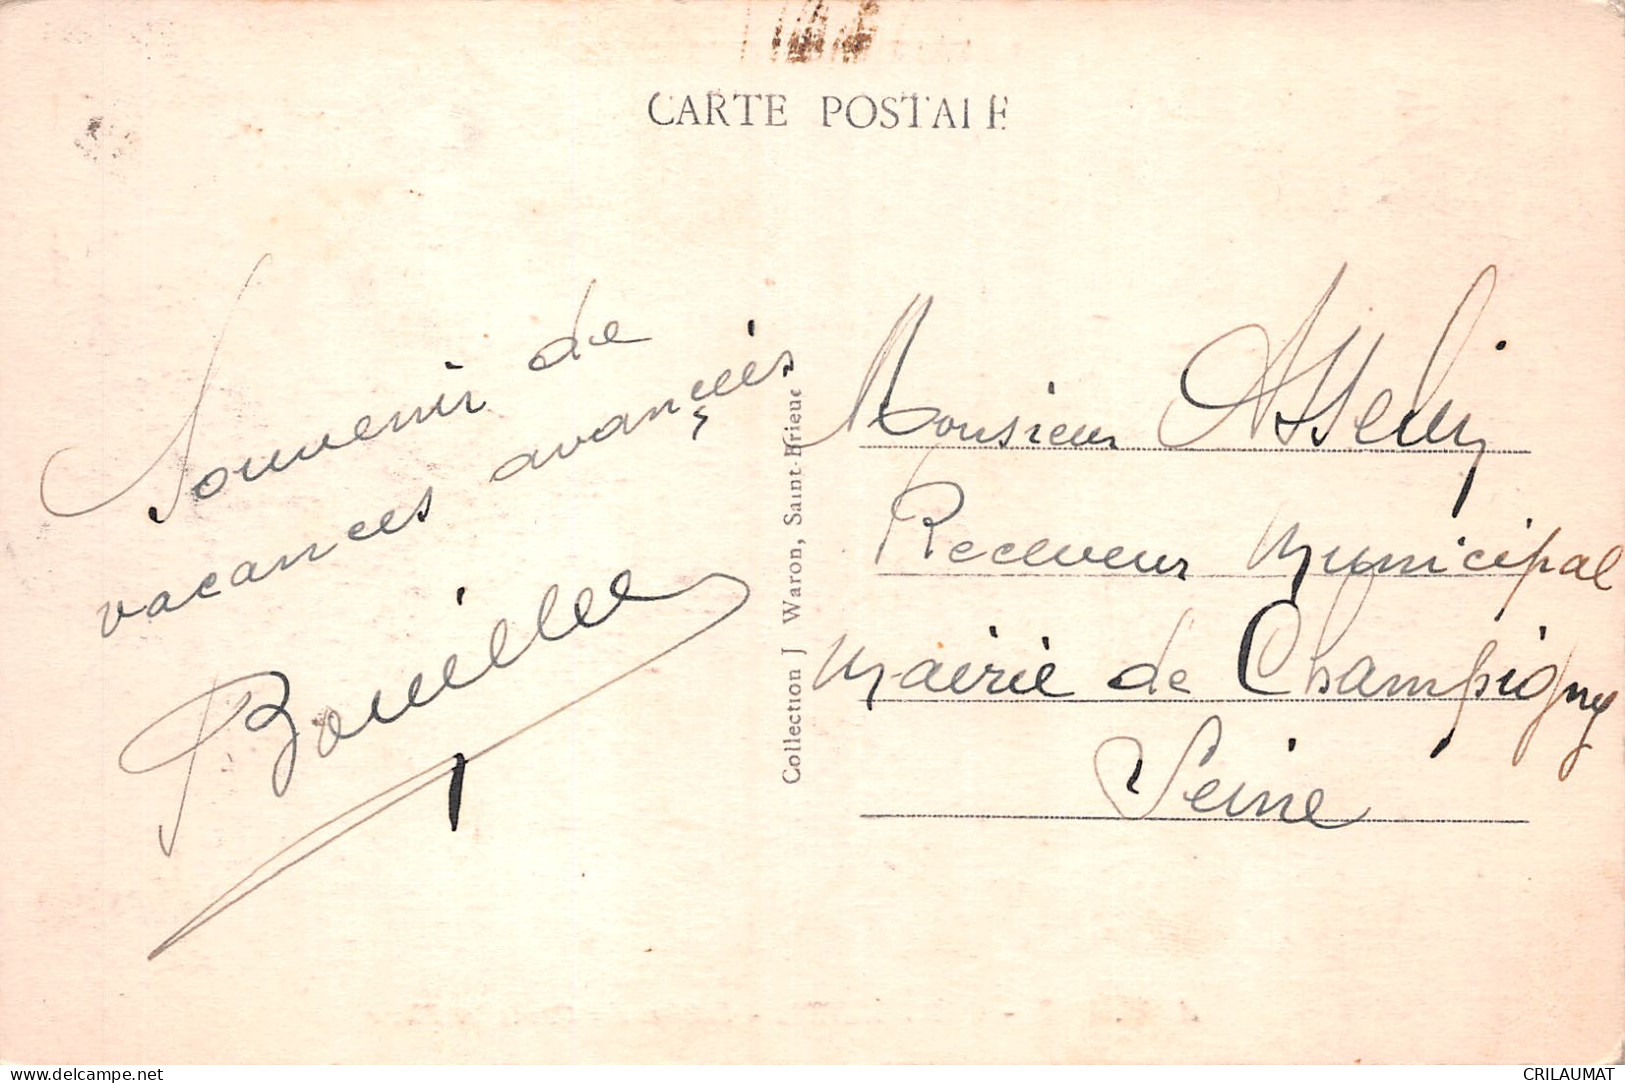 CARTE POSTALE
Souvenir de
vacances avancées
Bouille
Collection J Waron, Saint-Brieuc
Monsieur
Receveur Municipal
Mairie de Champigny
Seine
www.delcampe.net
CRILAUMAT